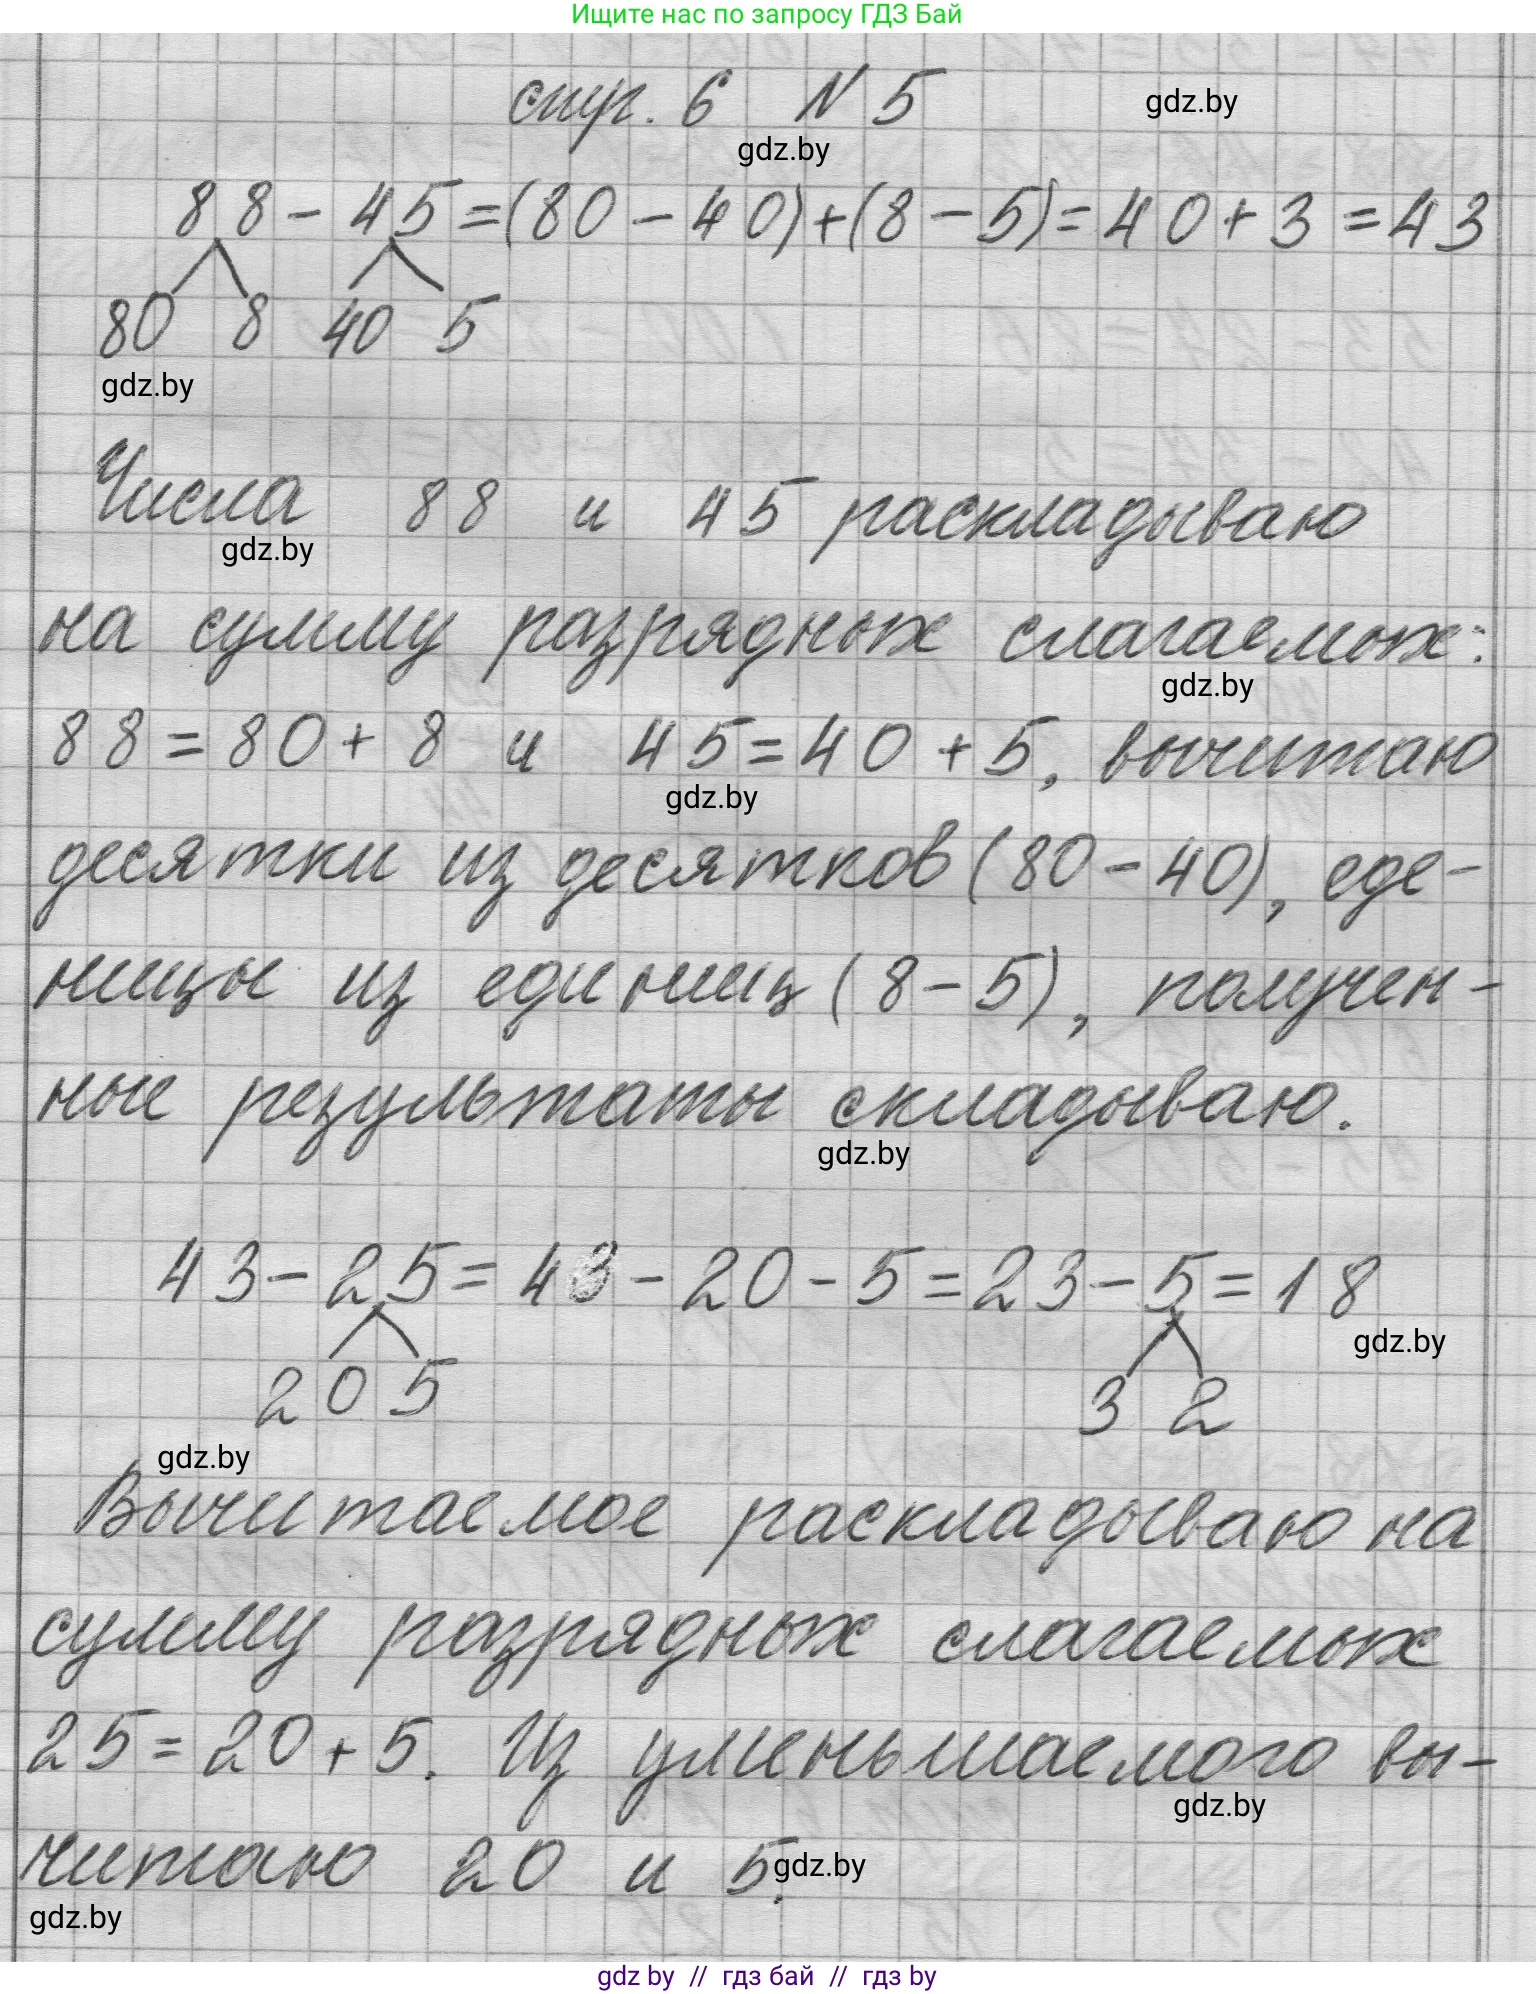 Ищите нас по запросу ГДЗ Бай
стр. 6 N 5
gdz.by
gdz.by
88-45=(80-40)+(8-5)=40+3=43
80 8 40 5
gdz.by
Числа 88 и 45 раскладываю
gdz.by
на сумму разрядных слагаемых:
gdz.by
88=80+8 и 45=40+5, вычитаю
gdz.by
десятки из десятков (80-40), еде-
ницы из единиц (8-5), получен-
ные результаты складываю.
gdz.by
43-25=43-20-5=23-5=18
gdz.by
20 5 3 2
gdz.by
Вычитаемое раскладываю на
сумму разрядных слагаемых
25=20+5. Из уменьшаемого вы-
gdz.by
читаю 20 и 5.
gdz.by
gdz.by
gdz by // гдз бай // гдз by